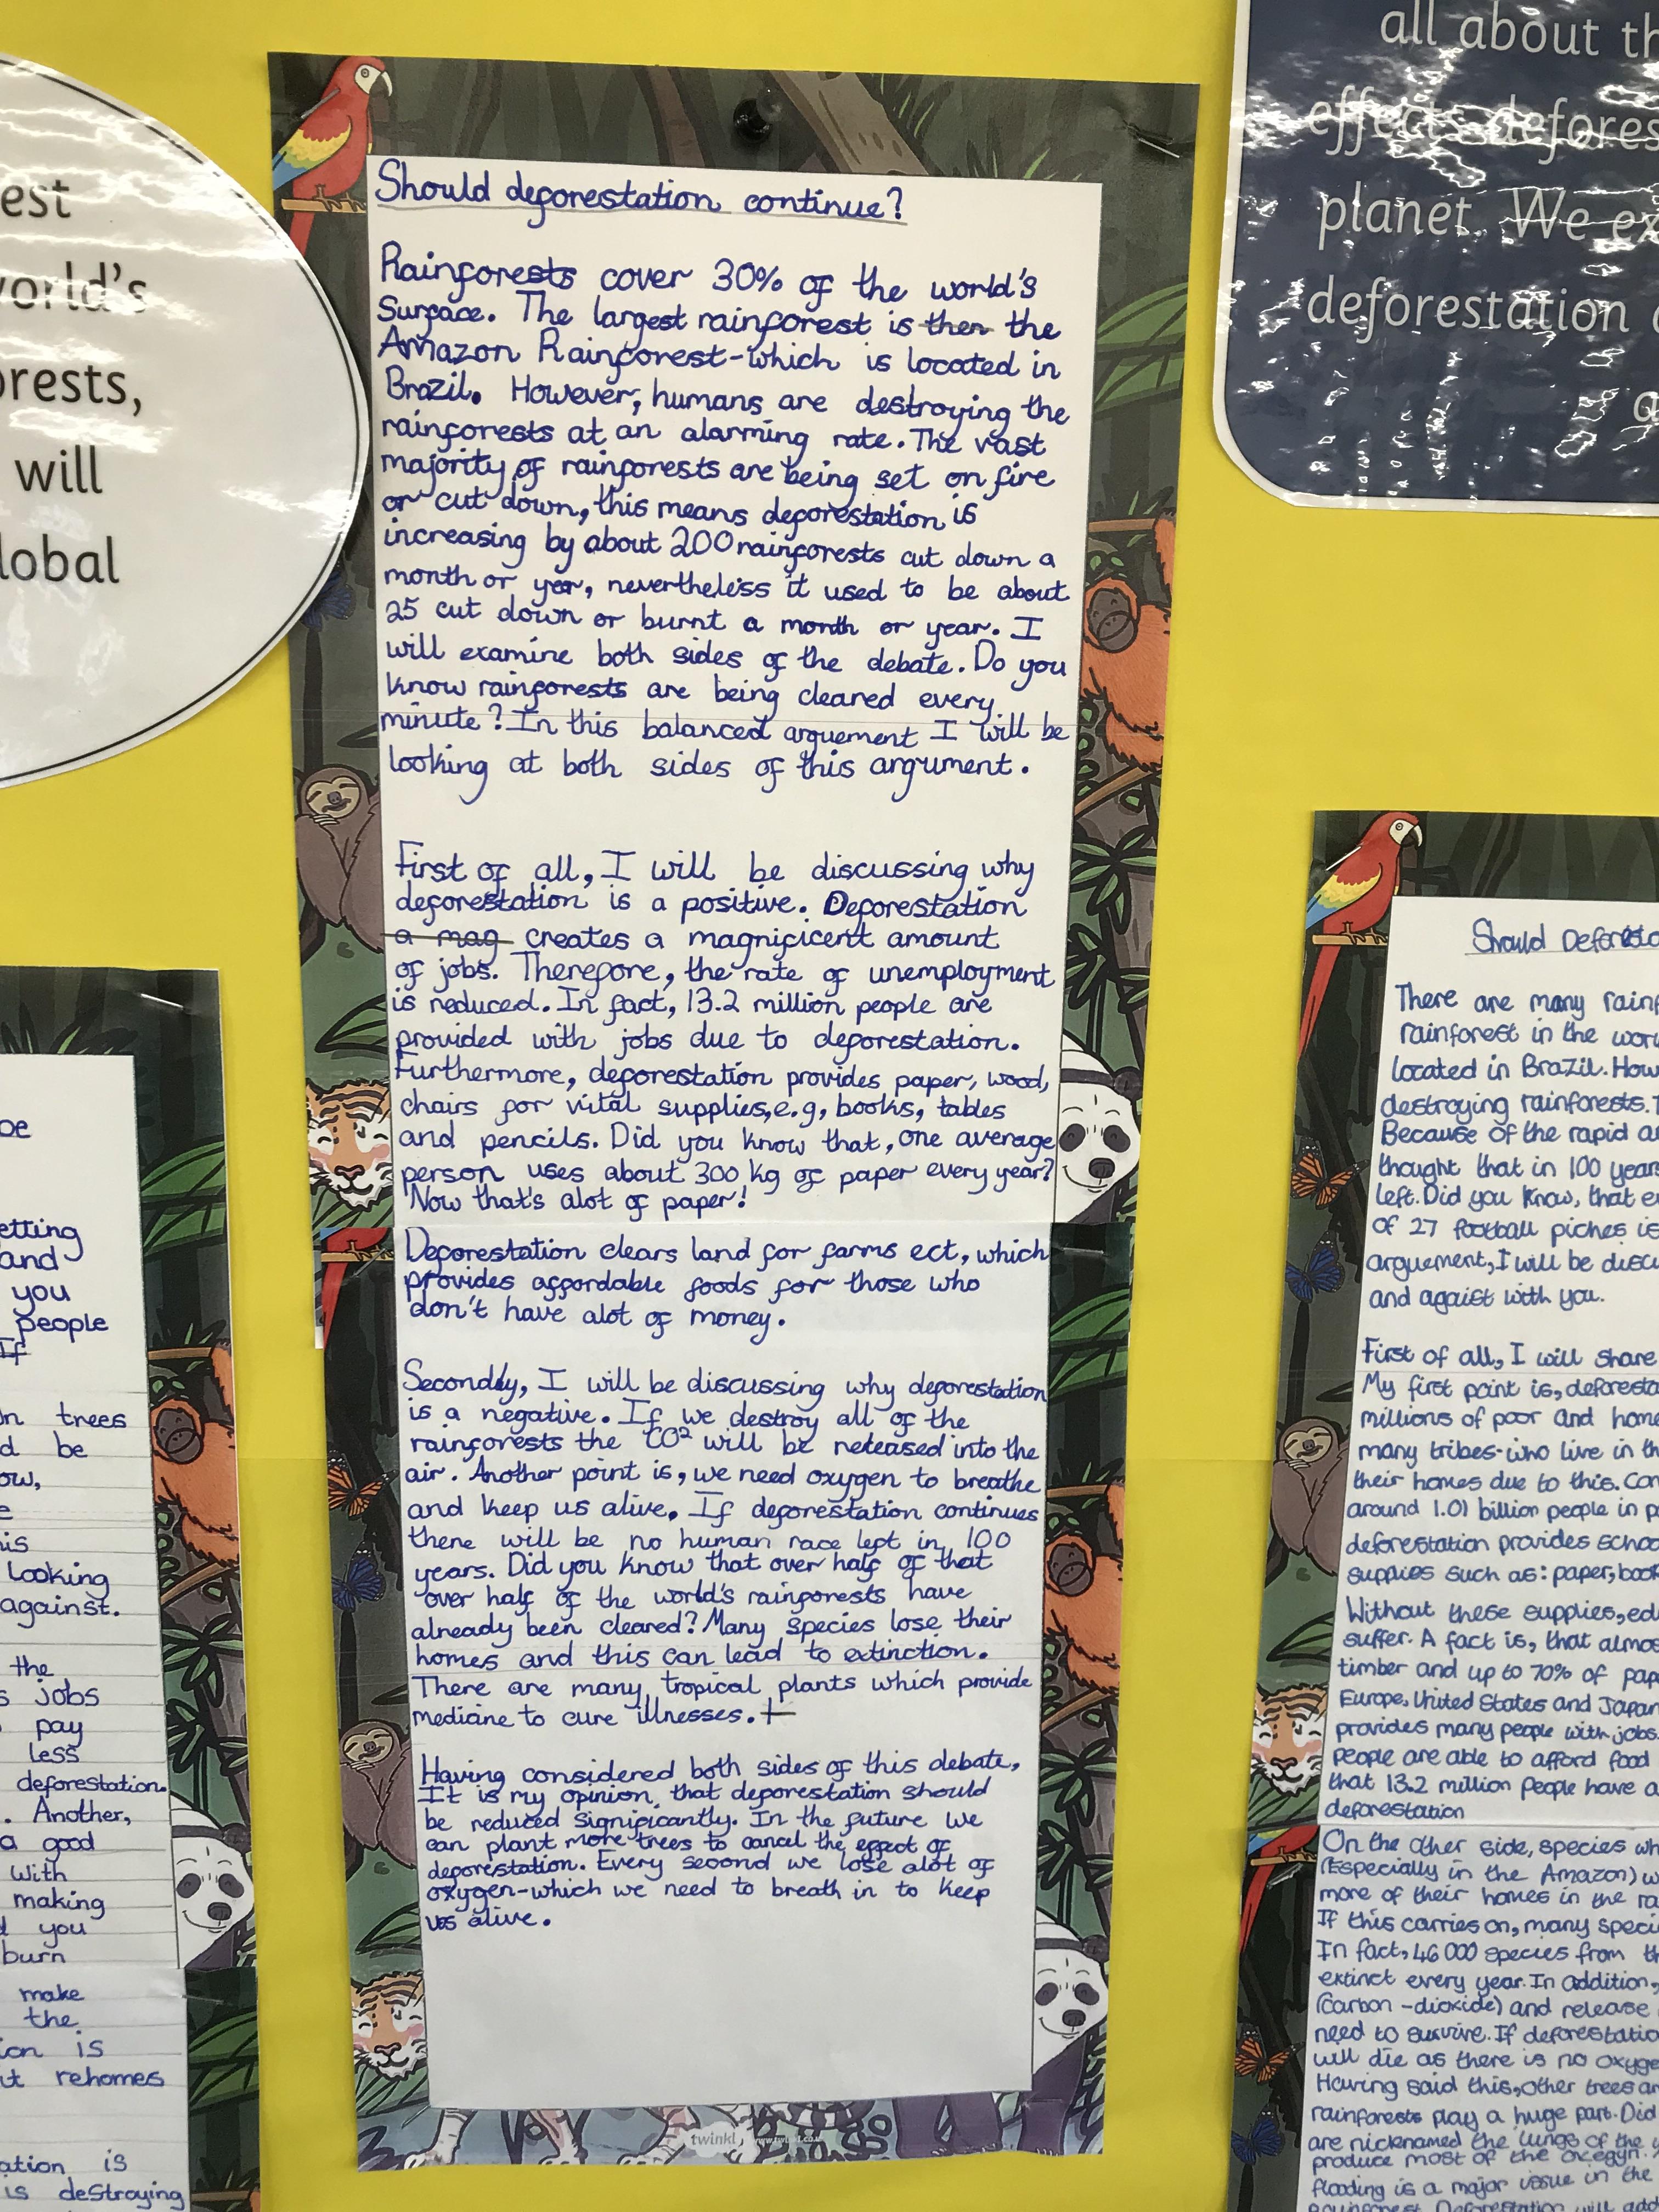 est
world's
orests,
will
lobal
all about th
effects defores
planet. We ex
deforestation
Should deforestation continue?
Rainforests cover 30% of the world's
Surface. The largest rainforest is then the
Amazon Rainforest-which is located in
Brazil. However, humans are destroying the
rainforests at an alarming rate. The vast
majority of rainforests are being set on fire
or cut down, this means deforestation is
increasing by about 200 rainforests cut down a
month or year, nevertheless it used to be about
25 cut down or burnt a month or year. I
will examine both sides of the debate. Do you
know rainforests are being cleared every
minute? In this balanced arguement I will be
looking at both sides of this argument.
First of all, I will be discussing why
deforestation is a positive. Deforestation
a mag creates a magnificent amount
of jobs. Therefore, the rate of unemployment
is reduced. In fact, 13.2 million people are
provided with jobs due to deforestation.
Furthermore, deforestation provides paper, wood,
chairs for vital supplies, e.g, books, tables
and pencils. Did you know that, one average
person uses about 300 kg of paper every year?
Now that's alot of paper!
Deforestation clears land for farms ect, which
provides affordable foods for those who
don't have alot of money.
Secondly, I will be discussing why deforestation
is a negative. If we destroy all of the
rainforests the CO² will be released into the
air. Another point is, we need oxygen to breathe
and keep us alive. If deforestation continues
there will be no human race left in 100
years. Did you know that over half of that
over half of the world's rainforests have
already been cleared? Many species lose their
homes and this can lead to extinction.
There are many tropical plants which provide
medicine to cure illnesses.
Having considered both sides of this debate,
It is my opinion, that deforestation should
be reduced significantly. In the future we
can plant more trees to cancel the effect of
deforestation. Every second we lose alot of
oxygen-which we need to breath in to keep
us alive.
twinkl
etting
and
you
people
If
In trees
d be
ow,
his
Looking
against.
the
s jobs
pay
less
deforestation.
. Another,
a good
with
making
d you
burn
make
the
ion is
ut rehomes
ation is
is destroying
Should Deforesta
There are many rainf
rainforest in the wor
located in Brazil. How
destroying rainforests. T
Because of the rapid a
thought that in 100 years
left. Did you know, that e
of 27 football piches is
arguement, I will be discu
and agaist with you.
First of all, I will share
My first point is, deforesta
millions of poor and home
many tribes-who live in th
their homes due to this. Con
around 1.01 billion people in p
deforestation provides schoo
supplies such as: paper, boo
Without these supplies, ed
suffer. A fact is, that almos
timber and up to 70% of pap
Europe, United States and Japan
provides many people with jobs.
people are able to afford food
that 13.2 million people have a
deforestation
On the other side, species wh
(Especially in the Amazon) w
more of their homes in the ra
If this carries on, many speci
In fact, 46 000 species from th
extinct every year. In addition,
(carbon-dioxide) and release
need to survive. If deforestatio
will die as there is no oxyge
Having said this, other trees ar
rainforests play a huge part. Did
are nicknamed the lungs of the
produce most of the oxegyn.
flooding is a major issue in the